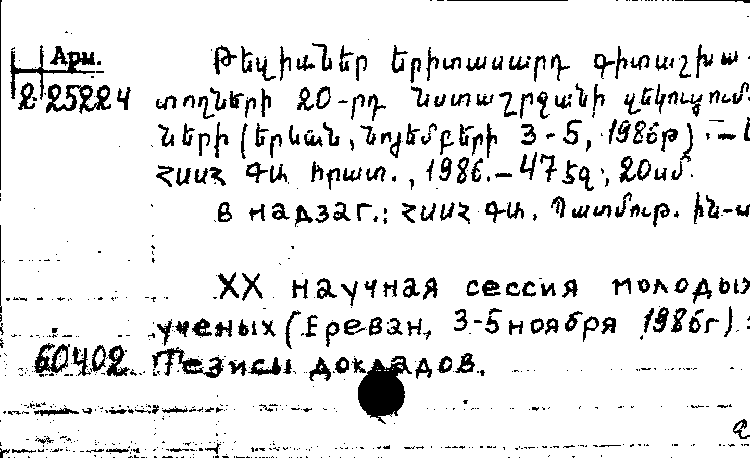 Арм.
2 25224
Թեզիսներ երիտասարդ գիտաշխա-
տողների 20-րդ նստաշրջանի զեկուցում-
ների (Երևան, նոյեմբերի 3-5, 1986թ) .–Ե
ՀՍՍՀ ԳԱ հրատ., 1986.–47 էջ; 20սմ.
В надзаг.: ՀՍՍՀ ԳԱ. Պատմութ. ին-տ
XX научная сессия молодых
ученых (Ереван, 3-5 ноября 1986г) :
60402 Тезисы докладов.